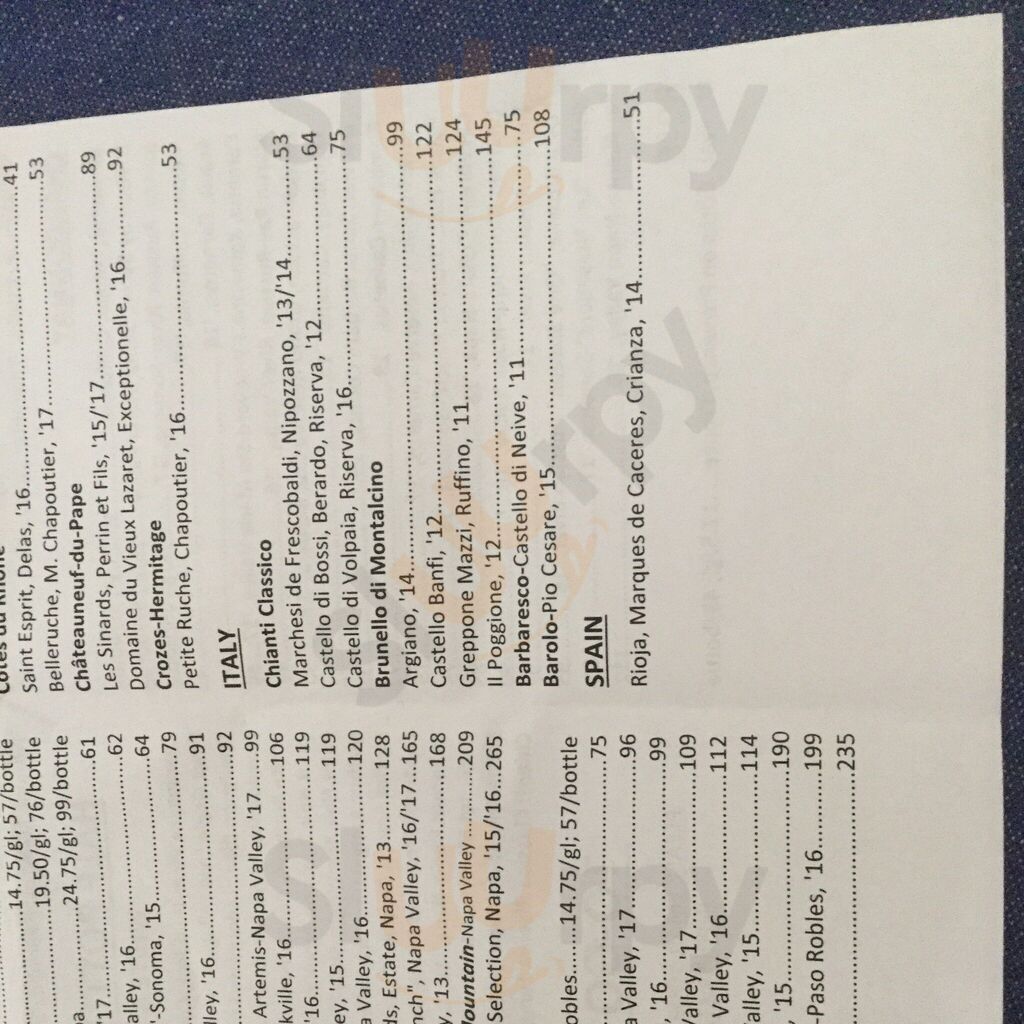 14.75/gl; 57/bottle
19.50/gl; 76/bottle
24.75/gl; 99/bottle
61
'17 62
alley, '16 64
-Sonoma, '15 79
91
lley, '16 92
Artemis-Napa Valley, '17 99
kville, '16 106
'16 119
ey, '15 119
a Valley, '16 120
ds, Estate, Napa, '13 128
nch", Napa Valley, '16/'17 165
y, '13 168
ountain-Napa Valley 209
Selection, Napa, '15/'16 265
obles 14.75/gl; 57/bottle
75
a Valley, '17 96
, '16 99
Valley, '17 109
Valley, '16 112
alley, '15 114
, '15 190
-Paso Robles, '16 199
235
Côtes du Rhône
Saint Esprit, Delas, '16 41
Belleruche, M. Chapoutier, '17 53
Châteauneuf-du-Pape
Les Sinards, Perrin et Fils, '15/'17 89
Domaine du Vieux Lazaret, Exceptionelle, '16 92
Crozes-Hermitage
Petite Ruche, Chapoutier, '16 53
ITALY
Chianti Classico
Marchesi de Frescobaldi, Nipozzano, '13/'14 53
Castello di Bossi, Berardo, Riserva, '12 64
Castello di Volpaia, Riserva, '16 75
Brunello di Montalcino
Argiano, '14 99
Castello Banfi, '12 122
Greppone Mazzi, Ruffino, '11 124
Il Poggione, '12 145
Barbaresco-Castello di Neive, '11 75
Barolo-Pio Cesare, '15 108
SPAIN
Rioja, Marques de Caceres, Crianza, '14 51
Slurpy
Slurpy
Slurpy